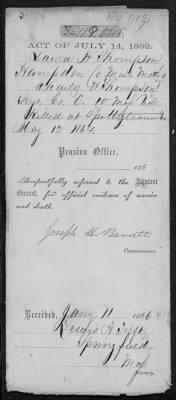 ACT OF JULY 14, 1862.
Laura H Thompson
Hampden Co Mass Mother
Charles Thompson
Co. E. 10 Mass Vols
Killed at Spottsylvania
May 12, 1864
Pension Office,
186
Respectfully referred to the Adjutant
General, for official evidence of service
and death.
Joseph H Barrett
Commissioner.
Received, Jany 11 1866
Springfield
Mass